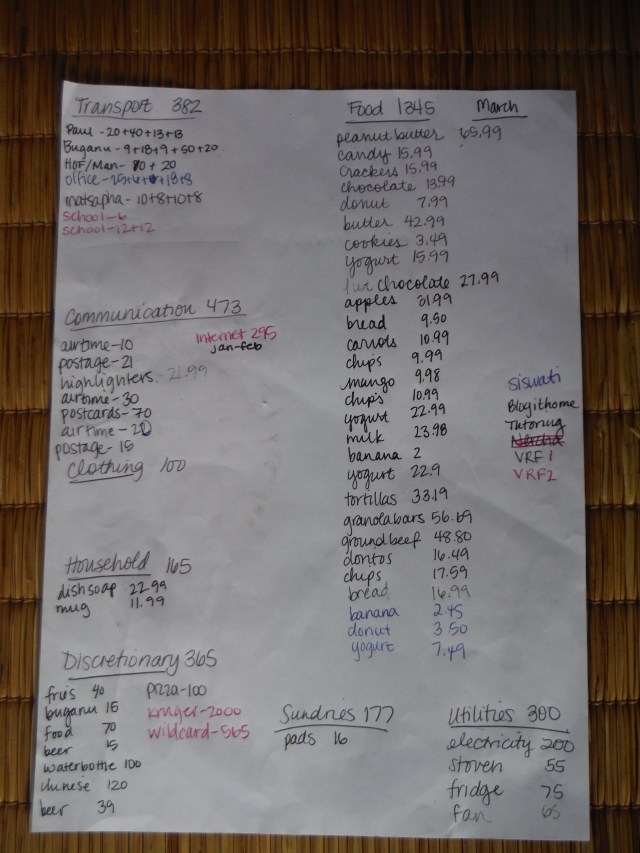 Transport 382
Paul - 20+40+13+13
Buganu - 9+18+9+50+20
HOF/Man- 70 + 20
office -25+6+ +18+8
matsapha - 10+8+10+8
school-6
school-12+12
Communication 473
airtime-10
postage-21
highlighters - 21.99
airtime-30
postcards-70
airtime - 20
postage - 15
Internet 295
jan-feb
Clothing 100
Household 165
dish soap 22.99
mug 11.99
Discretionary 365
fries 40
buganu 15
food 70
beer 15
waterbottle 100
chinese 120
beer 39
pizza-100
kruger-2000
wildcard-565
Food 1345
March
peanut butter 65.99
candy 15.99
crackers 15.99
chocolate 13.99
donut 7.99
butter 42.99
cookies 3.49
yogurt 15.99
chocolate 27.99
apples 31.99
bread 9.50
carrots 10.99
chips 9.99
mango 9.98
chips 10.99
yogurt 22.99
milk 23.98
banana 2
yogurt 22.9
tortillas 33.19
granola bars 56.69
ground beef 48.80
doritos 16.49
chips 17.59
bread 16.99
banana 2.45
donut 3.50
yogurt 7.49
siswati
Blogithome
VRF 1
VRF2
Sundries 177
pads 16
Utilities 300
electricity 200
stoven 55
fridge 75
fan 65